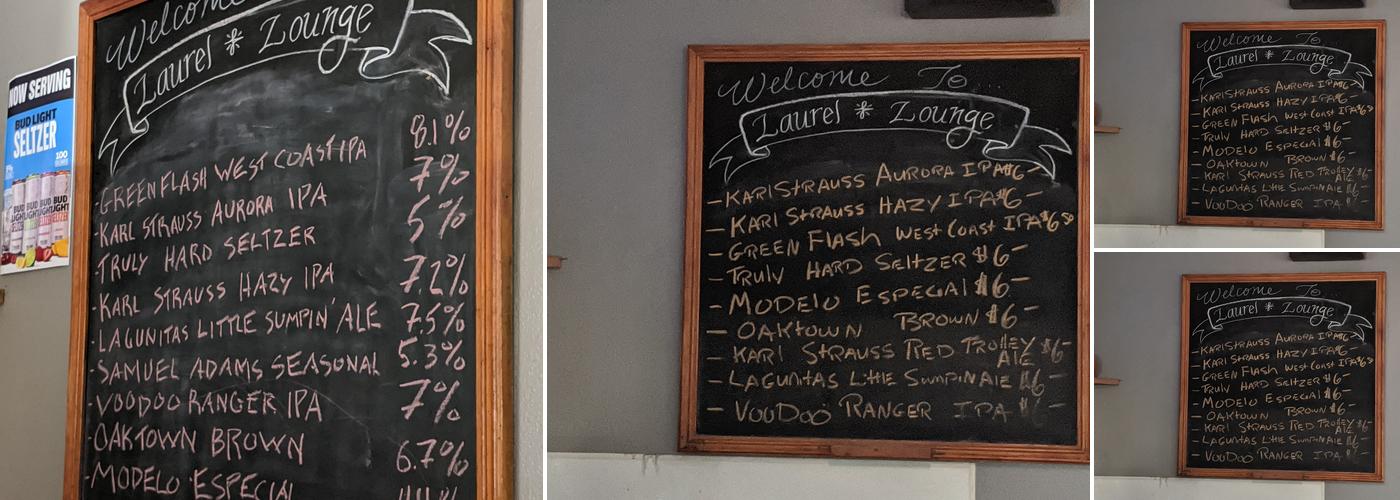 NOW SERVING
BUD LIGHT
SELTZER
100
Welcome
Laurel * Lounge
-GREEN FLASH WEST COAST IPA 8.1%
-KARL STRAUSS AURORA IPA 7%
-TRULY HARD SELTZER 5%
-KARL STRAUSS HAZY IPA 7.2%
-LAGUNITAS LITTLE SUMPIN' ALE 7.5%
-SAMUEL ADAMS SEASONAL 5.3%
-VOODOO RANGER IPA 7%
-OAKTOWN BROWN 6.7%
-MODELO ESPECIAL
Welcome To...
Laurel * Lounge
- KARL STRAUSS AURORA IPA $6-
- KARL STRAUSS HAZY IPA $6-
- GREEN FLASH West Coast IPA $6.50
- TRULY HARD SELTZER $6-
- MODELO ESPECIAL $6-
- OAKTOWN BROWN $6-
- KARL STRAUSS RED TROLLEY ALE $6-
- LAGUNITAS Little SUMPIN ALE $6-
- VOODOO RANGER IPA $6-
Welcome To
Laurel * Lounge
- KARL STRAUSS AURORA IPA $6-
- KARL STRAUSS HAZY IPA $6-
- GREEN FLASH West Coast IPA $6.50
- TRULY HARD SELTZER $6-
- MODELO ESPECIAL $6-
- OAKTOWN BROWN $6-
- KARL STRAUSS RED TROLLEY ALE $6-
- LAGUNITAS Little SUMPIN ALE $6-
- VOODOO RANGER IPA $6-
Welcome To
Laurel * Lounge
- KARL STRAUSS AURORA IPA $6-
- KARL STRAUSS HAZY IPA $6-
- GREEN FLASH West Coast IPA $6.50
- TRULY HARD SELTZER $6-
- MODELO ESPECIAL $6-
- OAKTOWN BROWN $6-
- KARL STRAUSS RED TROLLEY ALE $6-
- LAGUNITAS Little SUMPIN ALE $6-
- VOODOO RANGER IPA $6-